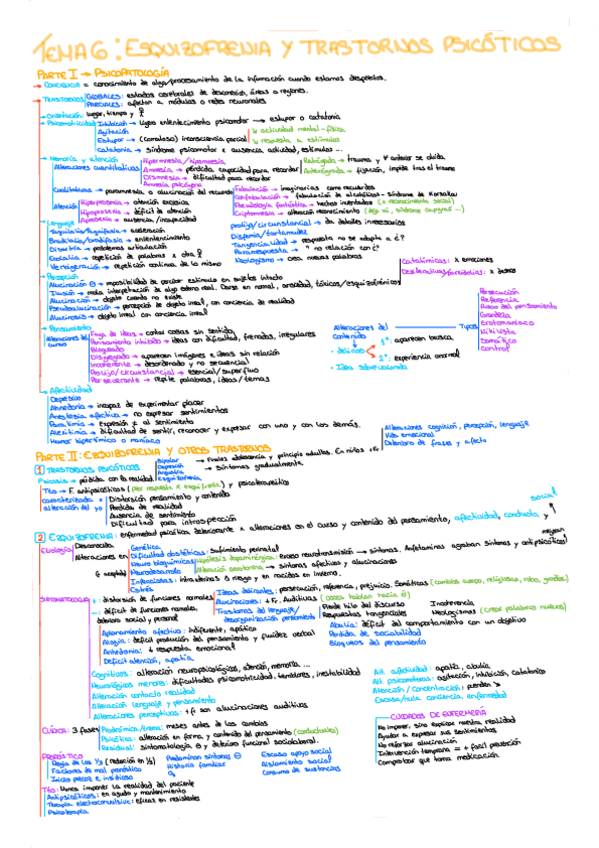 TEMA 6: ESQUIZOFRENIA Y TRASTORNOS PSICÓTICOS
PARTE I → PSICOPATOLOGÍA
CONCIENCIA = conocimiento de algo/procesamiento de la información cuando estamos despiertos.
TRASTORNOS GLOBALES: estados cerebrales de desconexión, áreas o regiones.
PARCIALES: afectan a módulos o redes neuronales
Orientación: lugar, tiempo y
Psicomotricidad Inhibición → ligero enlentecimiento psicomotor → estupor o catatonia
Agitación
Estupor → (comatoso) inconsciencia parcial
↓ actividad mental-física
↓ respuesta a estímulos
Catatonia → síndrome psicomotor x ausencia, actividad, estímulos ...
Memoria y atención
Alteraciones cuantitativas
Hipermnesia/hipomnesia
Amnesia → pérdida capacidad para recordar
Dismnesia → dificultad para recordar
Amnesia psicógena
Retrógrada → trauma y anterior se olvida
Anterógrada → fijación, impide tras el trauma
Cualitativas → paramnesia o alucinación del recuerdo
Fabulación → imaginarias como recuerdos
Confabulación → fabulación de alcohólicos - síndrome de Korsakov
Pseudología fantástica → hechos inventados (x reconocimiento social)
Criptomnesia → alteración reconocimiento (déjà vu, síndrome capgras ...)
Atención
Hiperprosexia → atención excesiva
Hipoprosexia → déficit de atención
Aprosexia → ausencia/incapacidad
Lenguaje
Taquilalia/Taquifasia → aceleración
Bradilalia/bradifasia → enlentecimiento
Disartria → problemas articulación
Ecolalia → repetición de palabras x otra
Verbigeración → repetición continua de lo mismo
prolijo/circunstancial → da detalles innecesarios
Disfemia/tartamudez
Tangencialidad → respuesta no se adapta a ¿?
Pararrespuesta → " no relación con ¿?
Neologismo → crea nuevas palabras
Percepción
Alucinación ⊖ → imposibilidad de percibir estímulo en sujetos intacto
Ilusión → mala interpretación de algo externo real. Darse en normal, ansiedad, tóxicos/esquizofrénicos
Catatímicas: x emociones
Alucinación → objeto cuando no existe
Pseudoalucinación → percepción de objeto irreal, con conciencia de realidad
Alucinosis → objeto irreal con conciencia irreal
Pensamiento
Alteraciones del curso
Fuga de ideas → contar cosas sin sentido
Pensamiento inhibido → ideas con dificultad, frenadas, irregulares
Bloqueado
Disgregado → aparecen imágenes e ideas sin relación
Incoherente → desordenado y no secuencial
Prolijo/circunstancial → esencial/superfluo
Perseverante → repite palabras, ideas/temas
Alteraciones del contenido
· delirios
1º: aparecen busca
2º: experiencia anormal
· Idea sobrevalorada
Tipos
Persecución
Referencia
Robo del pensamiento
Grandeza
Erotomaníaco
Nihilista
Somático
Control
Afectividad
Depresión
Anhedonia → incapaz de experimentar placer
Anestesia afectiva → no expresar sentimientos
Paratimia → expresión ≠ al sentimiento
Alexitimia → dificultad de sentir, reconocer y expresar con uno y con los demás.
Humor hipertímico o maníaco
PARTE II: ESQUIZOFRENIA Y OTROS TRASTORNOS
1 TRASTORNOS PSICÓTICOS
Psicosis = pérdida con la realidad
Bipolar
Depresión
Esquizofrenia
→ Finales adolescencia y principio adultos. En niños ↓Fr
→ Síntomas gradualmente.
Alteraciones cognición, percepción, lenguaje
Vida emocional
Deterioro de frases y afecto
Tto → F. antipsicóticos (per respuesta x esquizofrenia) y psicoterapéutico
caracterizada x alteración del yo
Distorsión pensamiento y contenido
Pérdida de realidad
Ausencia de sentimiento
Dificultad para introspección
2 ESQUIZOFRENIA: enfermedad psicótica, deteriorante x alteraciones en el curso y contenido del pensamiento, afectividad, conducta, y social
Etiología Desconocida
Alteraciones en
Genética
Dificultad obstétricas: Sufrimiento perinatal
Neuro bioquímicas → Hipótesis dopaminérgica: exceso neurotransmisión → síntomas. Anfetaminas agravan síntomas y antipsicóticos mejoran
Alteración serotonina → síntomas afectivos y alucinaciones
Neurodesarrollo
Infecciosas: intrauterinas ↑ riesgo y en nacidos en invierno.
Estrés
SINTOMATOLOGÍA
+: distorsión de funciones normales
Ideas delirantes: persecución, referencia, perjuicio. Somáticas (cambios cuerpo, religiosas, robo, grandeza)
Alucinaciones: +Fr. Auditivas (voces hablan hacia él)
Trastornos del lenguaje/desorganización pensamiento
Pierde hilo del discurso
Respuestas tangenciales
Incoherencia
Neologismos (crear palabras nuevas)
-: déficit de funciones normales, deterioro social y personal
Aplanamiento afectivo: indiferente, apático
Alogia: déficit producción del pensamiento y fluidez verbal
Anhedonia: ↓ respuesta emocional
Déficit atención, apatía
Abulia: déficit del comportamiento con un objetivo
Pérdida de sociabilidad
Bloqueos del pensamiento
Cognitivos: alteración neuropsicológicas, atención, memoria ...
Neurológicos menores: dificultades psicomotricidad, temblores, inestabilidad
Alteración contacto realidad
Alteración lenguaje y pensamiento
Alteraciones perceptivas: +fr son alucinaciones auditivas
Alt. afectividad: apatía, abulia
Alt. psicomotoras: agitación, inhibición, catatónico
Atención/Concentración: pierden
Escasa/nula conciencia enfermedad
CLÍNICA: 3 fases
Prodrómica/trema: meses antes de los cambios
Psicótica: alteración en forma, y contenido del pensamiento (conductuales)
Residual: sintomatología ⊖ y deterioro funcional sociolaboral.
PRONÓSTICO
Regla de los 1/3 (reducción en 1/3)
Factores de mal pronóstico
Inicio precoz e insidioso
Predominan síntomas ⊖
Historia familiar
Escaso apoyo social
Aislamiento social
Consumo de sustancias
Tto: Nunca imponer la realidad del paciente
Antipsicóticos: en agudo y mantenimiento
Terapia electroconvulsiva: eficaz en resistentes
Psicoterapia
CUIDADOS DE ENFERMERÍA
No imponer, sino explicar nuestra realidad
Ayudar a expresar sus sentimientos
No reforzar alucinación
Intervención temprana = + fácil predicción
Comprobar que toma medicación